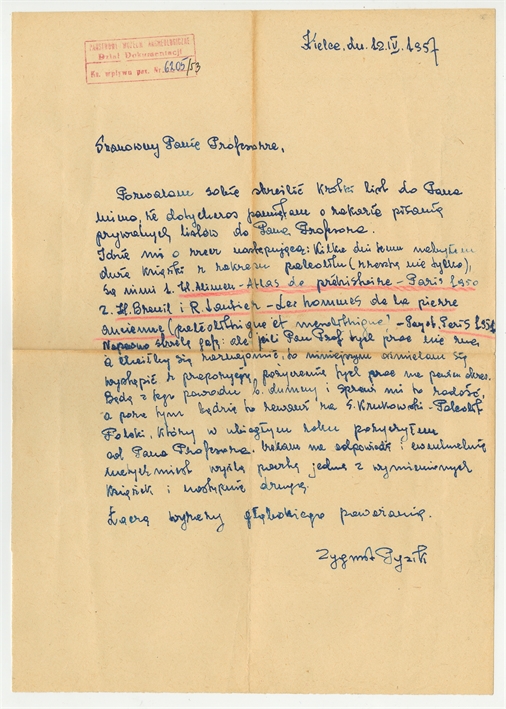 PAŃSTWOWE MUZEUM ARCHEOLOGICZNE
Dział Dokumentacji
Ks. wpływu poz. Nr. 6205/53
Kielce, dn. 12.IV.1957
Szanowny Panie Profesorze,
Pozwalam sobie skreślić krótki list do Pana
mimo, że dotychczas pamiętam o zakazie pisania
prywatnych listów do Pana Profesora.
Idzie mi o rzecz następującą: Kilka dni temu nabyłem
dwie książki z zakresu paleolitu (zresztą nie tylko),
są nimi 1. H. Alimen - Atlas de préhistoire - Paris 1950
2. H. Breuil i R. Lantier - Les hommes de la pierre
ancienne (paléolithique et mésolithique) - Payot, Paris 1951
Napewno strzelę gafę, ale jeśli Pan Prof tych prac nie zna,
a chciałby się zaznajomić, to niniejszym ośmielam się
wystąpić z propozycją pożyczenia tych prac na pewien okres.
Będę z tego powodu b. dumny i sprawi mi to radość,
a poza tym będzie to rewanż za S. Krukowski - Paleolit
Polski, który w ubiegłym roku pożyczyłem
od Pana Profesora. Czekam na odpowiedź i ewentualnie
natychmiast wyślę pocztą jedną z wymienionych
książek i następnie drugą.
Łączę wyrazy głębokiego poważania.
Zygmunt Pyzik